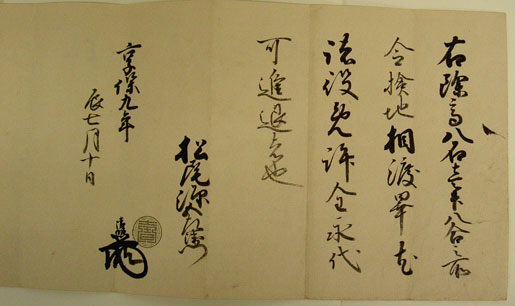 右除高八石壱斗八合之前
令検地相渡畢尤
諸役免許全永代
可進退者也
松尾源
享保九年
辰七月十日